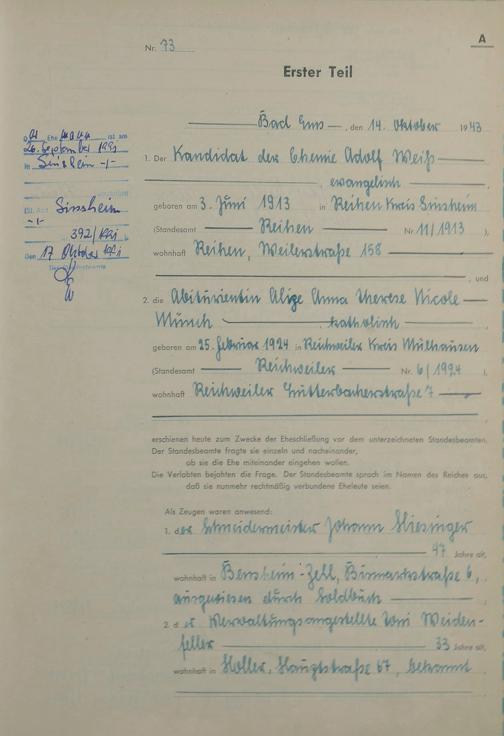 A
Nr. 73
Erster Teil
Bad Ems, den 14. Oktober 1943
1. Der Kandidat der Chemie Adolf Weiß
evangelisch
geboren am 3. Juni 1913 in Reihen Kreis Sinsheim
(Standesamt Reihen Nr. 11/1913)
wohnhaft Reihen, Weilerstraße 158
, und
2. die Abiturientin Alige Anna Therese Nicole
Münch katholisch
geboren am 25. Februar 1924 in Reichweiler Kreis Mülhausen
(Standesamt Reichweiler Nr. 6/1924).
wohnhaft Reichweiler Lutterbacherstraße 7
erschienen heute zum Zwecke der Eheschließung vor dem unterzeichneten Standesbeamten.
Der Standesbeamte fragte sie einzeln und nacheinander,
ob sie die Ehe miteinander eingehen wollen.
Die Verlobten bejahten die Frage. Der Standesbeamte sprach im Namen des Reiches aus,
daß sie nunmehr rechtmäßig verbundene Eheleute seien.
Als Zeugen waren anwesend:
1. der Schneidermeister Johann
47 Jahre alt,
wohnhaft in Bensheim-Zell, Bismarckstraße 6,
ausgewiesen durch Soldbuch
2. der Verwaltungsangestellte Toni Weiden-
feller 33 Jahre alt,
wohnhaft in Holler, Hauptstraße 67, bekannt
Ehemann ist am
26. September 1991
in Sinsheim -/-
Sinsheim
-/-
392/1991
Den 17. Oktober 1991